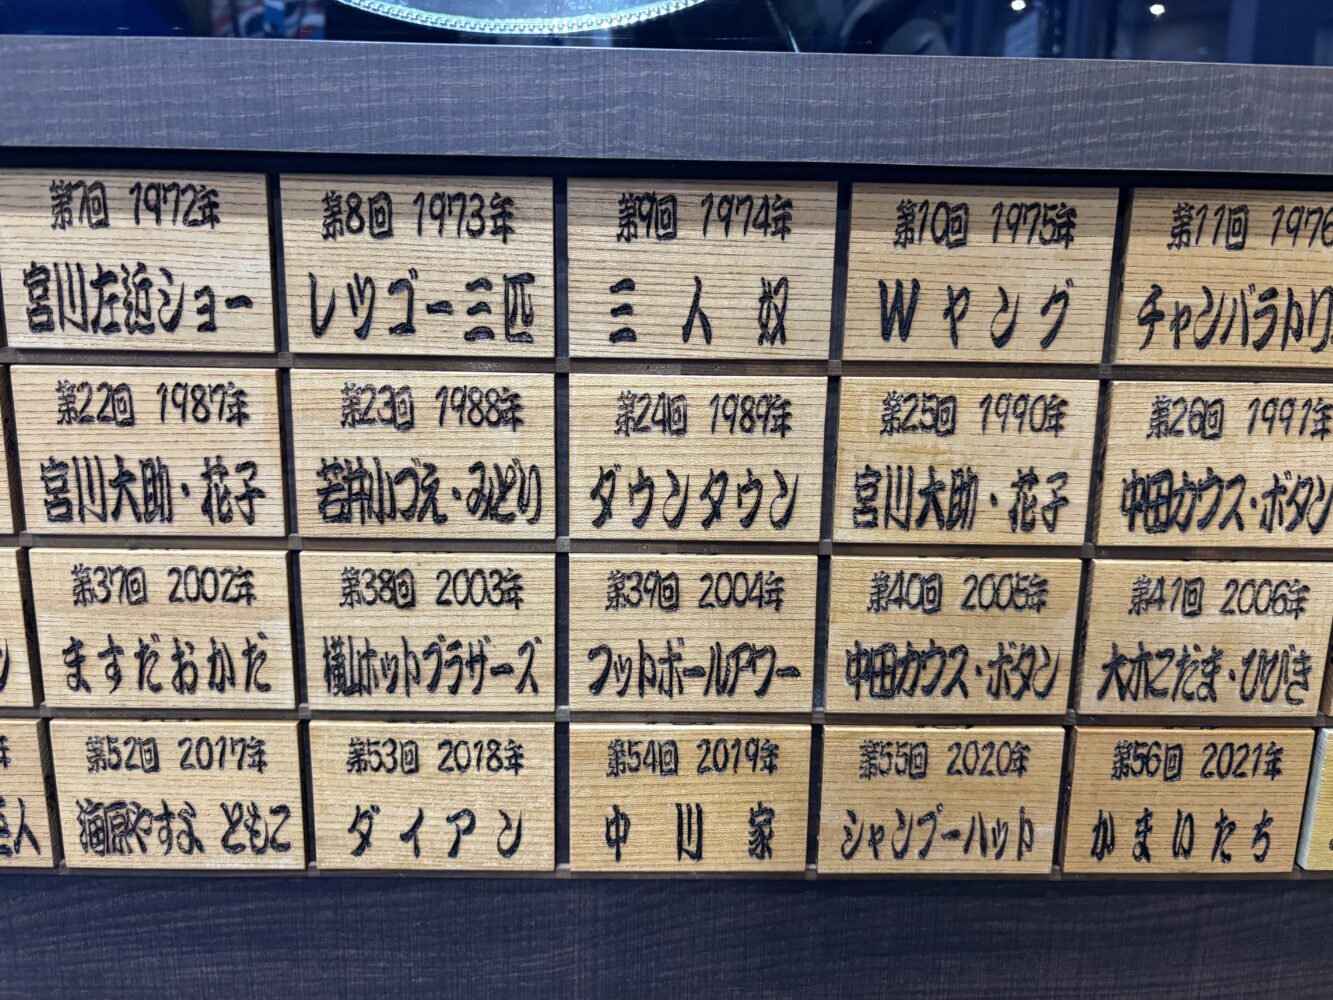 第7回 1972年
宮川左近ショー
第8回 1973年
レツゴー三匹
第9回 1974年
三人奴
第10回 1975年
Wヤング
第11回 1976
チャンバラトリ
第22回 1987年
宮川大助・花子
第23回 1988年
若井小づえ・みどり
第24回 1989年
ダウンタウン
第25回 1990年
宮川大助・花子
第26回 1991年
中田カウス・ボタン
ン
第37回 2002年
ますだおかだ
第38回 2003年
横山ホットブラザーズ
第39回 2004年
フットボールアワー
第40回 2005年
中田カウス・ボタン
第41回 2006年
大木こだま・ひびき
年
巨人
第52回 2017年
海原やすよ ともこ
第53回 2018年
ダイアン
第54回 2019年
中川家
第55回 2020年
シャンプーハット
第56回 2021年
かまいたち